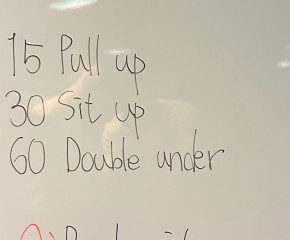 15 Pull up
30 Sit up
60 Double under